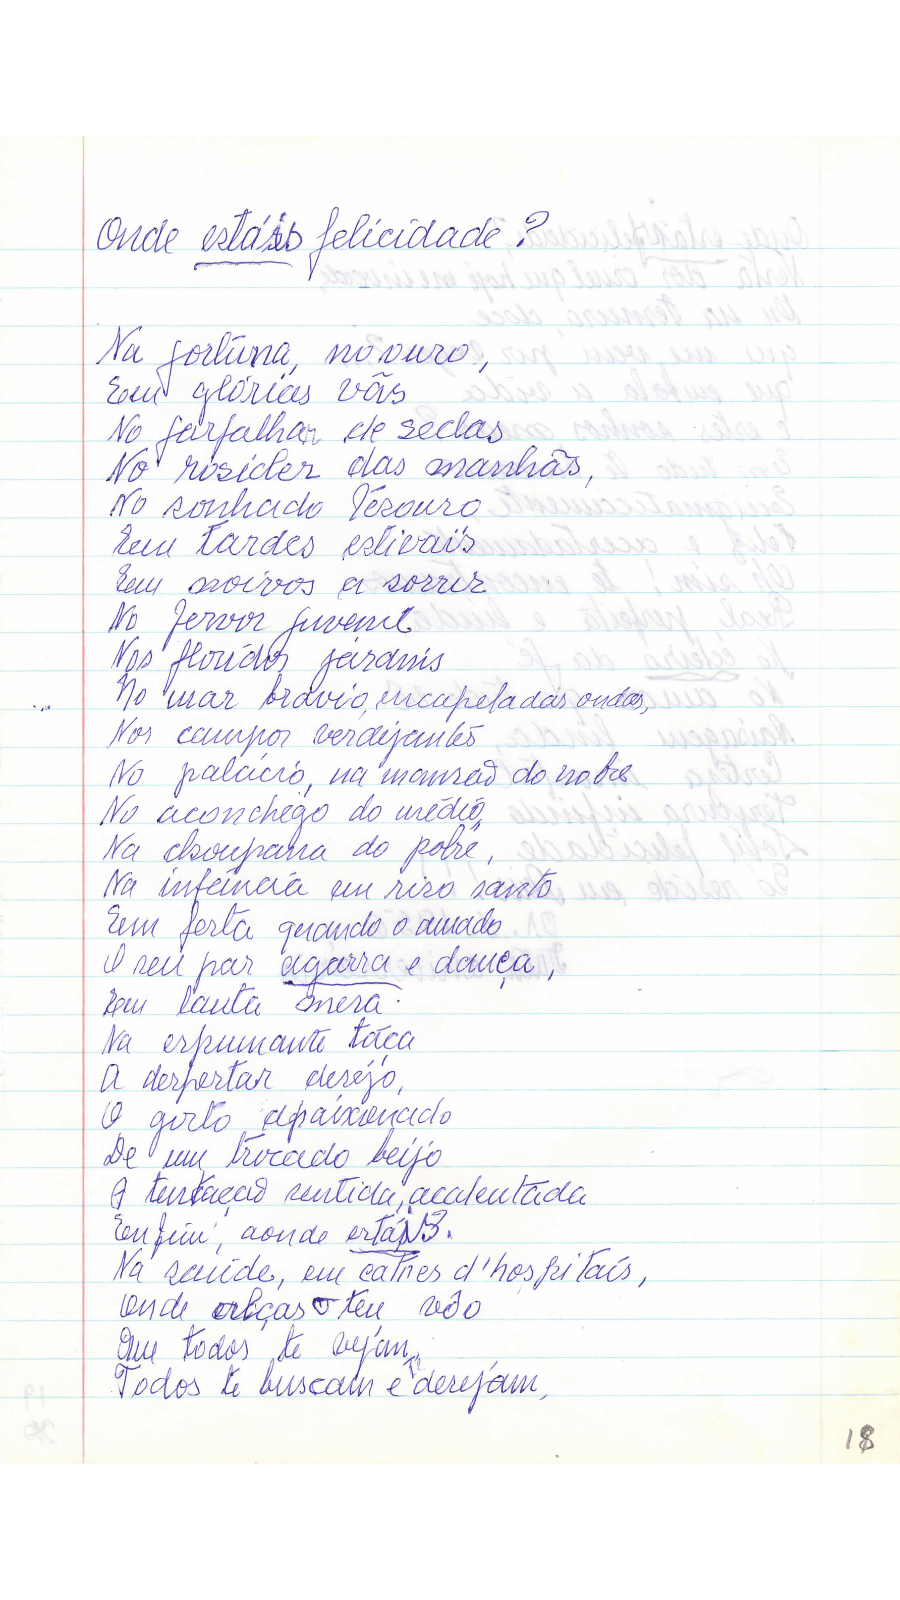 Onde estás felicidade?
Na fortuna, no ouro,
Em glórias vãs
No farfalhar de sedas
No rosicler das manhãs,
No sonhado Tesouro
Em tardes estivais
Em noivos a sorrir
No fervor juvenil
Nos floridos jardins
No mar bravio, encapeladas ondas,
Nos campos verdejantes
No palácio, na mansão do nobre
No aconchego do médio,
Na choupana do pobre,
Na infância em riso santo
Em festa quando o amado
O seu par agarra e dança,
Em lauta mesa.
Na espumante taça
A despertar desejo,
O gosto apaixonado
De um trocado beijo
A tentação sentida, acalentada
Enfim, aonde estás?.
Na saúde, em catres d'hospitais,
Onde o teu vôo
Que todos te vejam,
Todos te buscam e desejam,
18